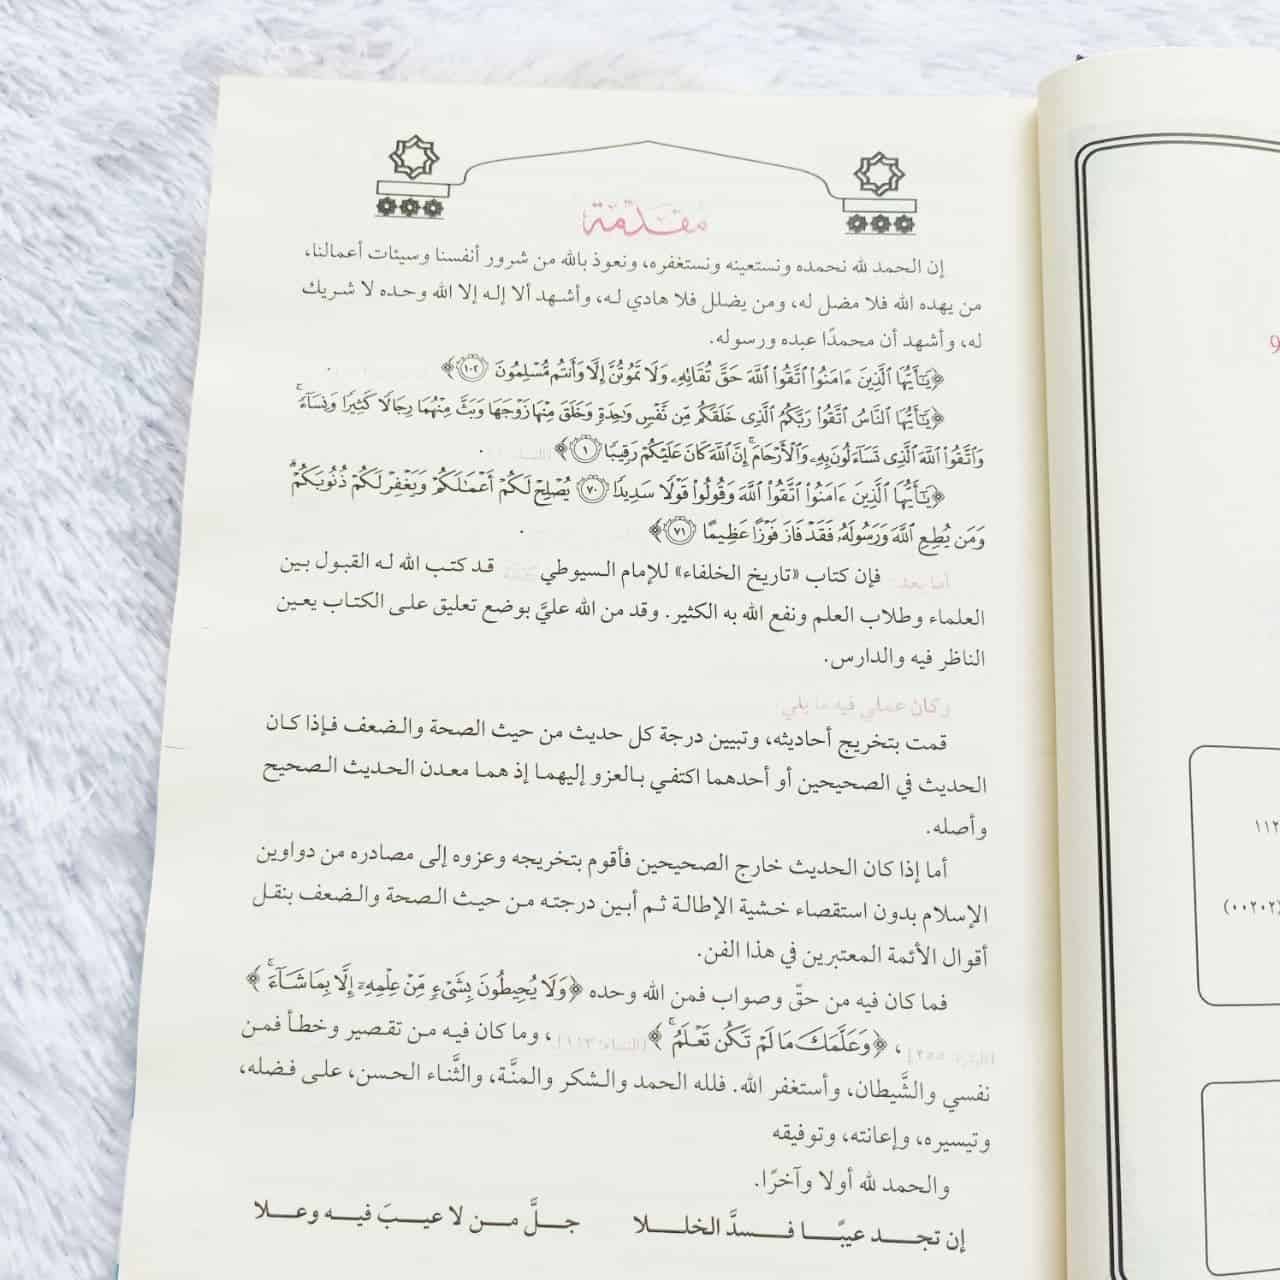 مقدمة
إن الحمد لله نحمده ونستعينه ونستغفره، ونعوذ بالله من شرور أنفسنا وسيئات أعمالنا،
من يهده الله فلا مضل له، ومن يضلل فلا هادي له، وأشهد ألا إله إلا الله وحده لا شريك
له، وأشهد أن محمدًا عبده ورسوله.
﴿يَٰٓأَيُّهَا ٱلَّذِينَ ءَامَنُوا۟ ٱتَّقُوا۟ ٱللَّهَ حَقَّ تُقَاتِهِۦ وَلَا تَمُوتُنَّ إِلَّا وَأَنتُم مُّسْلِمُونَ ١٠٢﴾
﴿يَٰٓأَيُّهَا ٱلنَّاسُ ٱتَّقُوا۟ رَبَّكُمُ ٱلَّذِى خَلَقَكُم مِّن نَّفْسٍ وَٰحِدَةٍ وَخَلَقَ مِنْهَا زَوْجَهَا وَبَثَّ مِنْهُمَا رِجَالًا كَثِيرًا وَنِسَآءً ۚ
وَٱتَّقُوا۟ ٱللَّهَ ٱلَّذِى تَسَآءَلُونَ بِهِۦ وَٱلْأَرْحَامَ ۚ إِنَّ ٱللَّهَ كَانَ عَلَيْكُمْ رَقِيبًا ١﴾
﴿يَٰٓأَيُّهَا ٱلَّذِينَ ءَامَنُوا۟ ٱتَّقُوا۟ ٱللَّهَ وَقُولُوا۟ قَوْلًا سَدِيدًا ٧٠ يُصْلِحْ لَكُمْ أَعْمَٰلَكُمْ وَيَغْفِرْ لَكُمْ ذُنُوبَكُمْ ۗ
وَمَن يُطِعِ ٱللَّهَ وَرَسُولَهُۥ فَقَدْ فَازَ فَوْزًا عَظِيمًا ٧١﴾
أما بعد: فإن كتاب «تاريخ الخلفاء» للإمام السيوطي قد كتب الله له القبول بين
العلماء وطلاب العلم ونفع الله به الكثير. وقد من الله عليَّ بوضع تعليق على الكتاب يعين
الناظر فيه والدارس.
وكان عملي فيه ما يلي:
قمت بتخريج أحاديثه، وتبيين درجة كل حديث من حيث الصحة والضعف فإذا كان
الحديث في الصحيحين أو أحدهما اكتفي بالعزو إليهما إذ هما معدن الحديث الصحيح
وأصله.
أما إذا كان الحديث خارج الصحيحين فأقوم بتخريجه وعزوه إلى مصادره من دواوين
الإسلام بدون استقصاء خشية الإطالة ثم أبين درجته من حيث الصحة والضعف بنقل
أقوال الأئمة المعتبرين في هذا الفن.
فما كان فيه من حقّ وصواب فمن الله وحده ﴿وَلَا يُحِيطُونَ بِشَىْءٍ مِّنْ عِلْمِهِۦٓ إِلَّا بِمَا شَآءَ ۚ﴾
[البقرة: ٢٥٥]، ﴿وَعَلَّمَكَ مَا لَمْ تَكُن تَعْلَمُ ۚ﴾ [النساء: ١١٣]، وما كان فيه من تقصير وخطأ فمن
نفسي والشَّيطان، وأستغفر الله. فلله الحمد والشكر والمنَّة، والثَّناء الحسن، على فضله،
وتيسيره، وإعانته، وتوفيقه
والحمد لله أولا وآخرًا.
إن تجد عيبًا فسدَّ الخللا جلَّ من لا عيبَ فيه وعلا